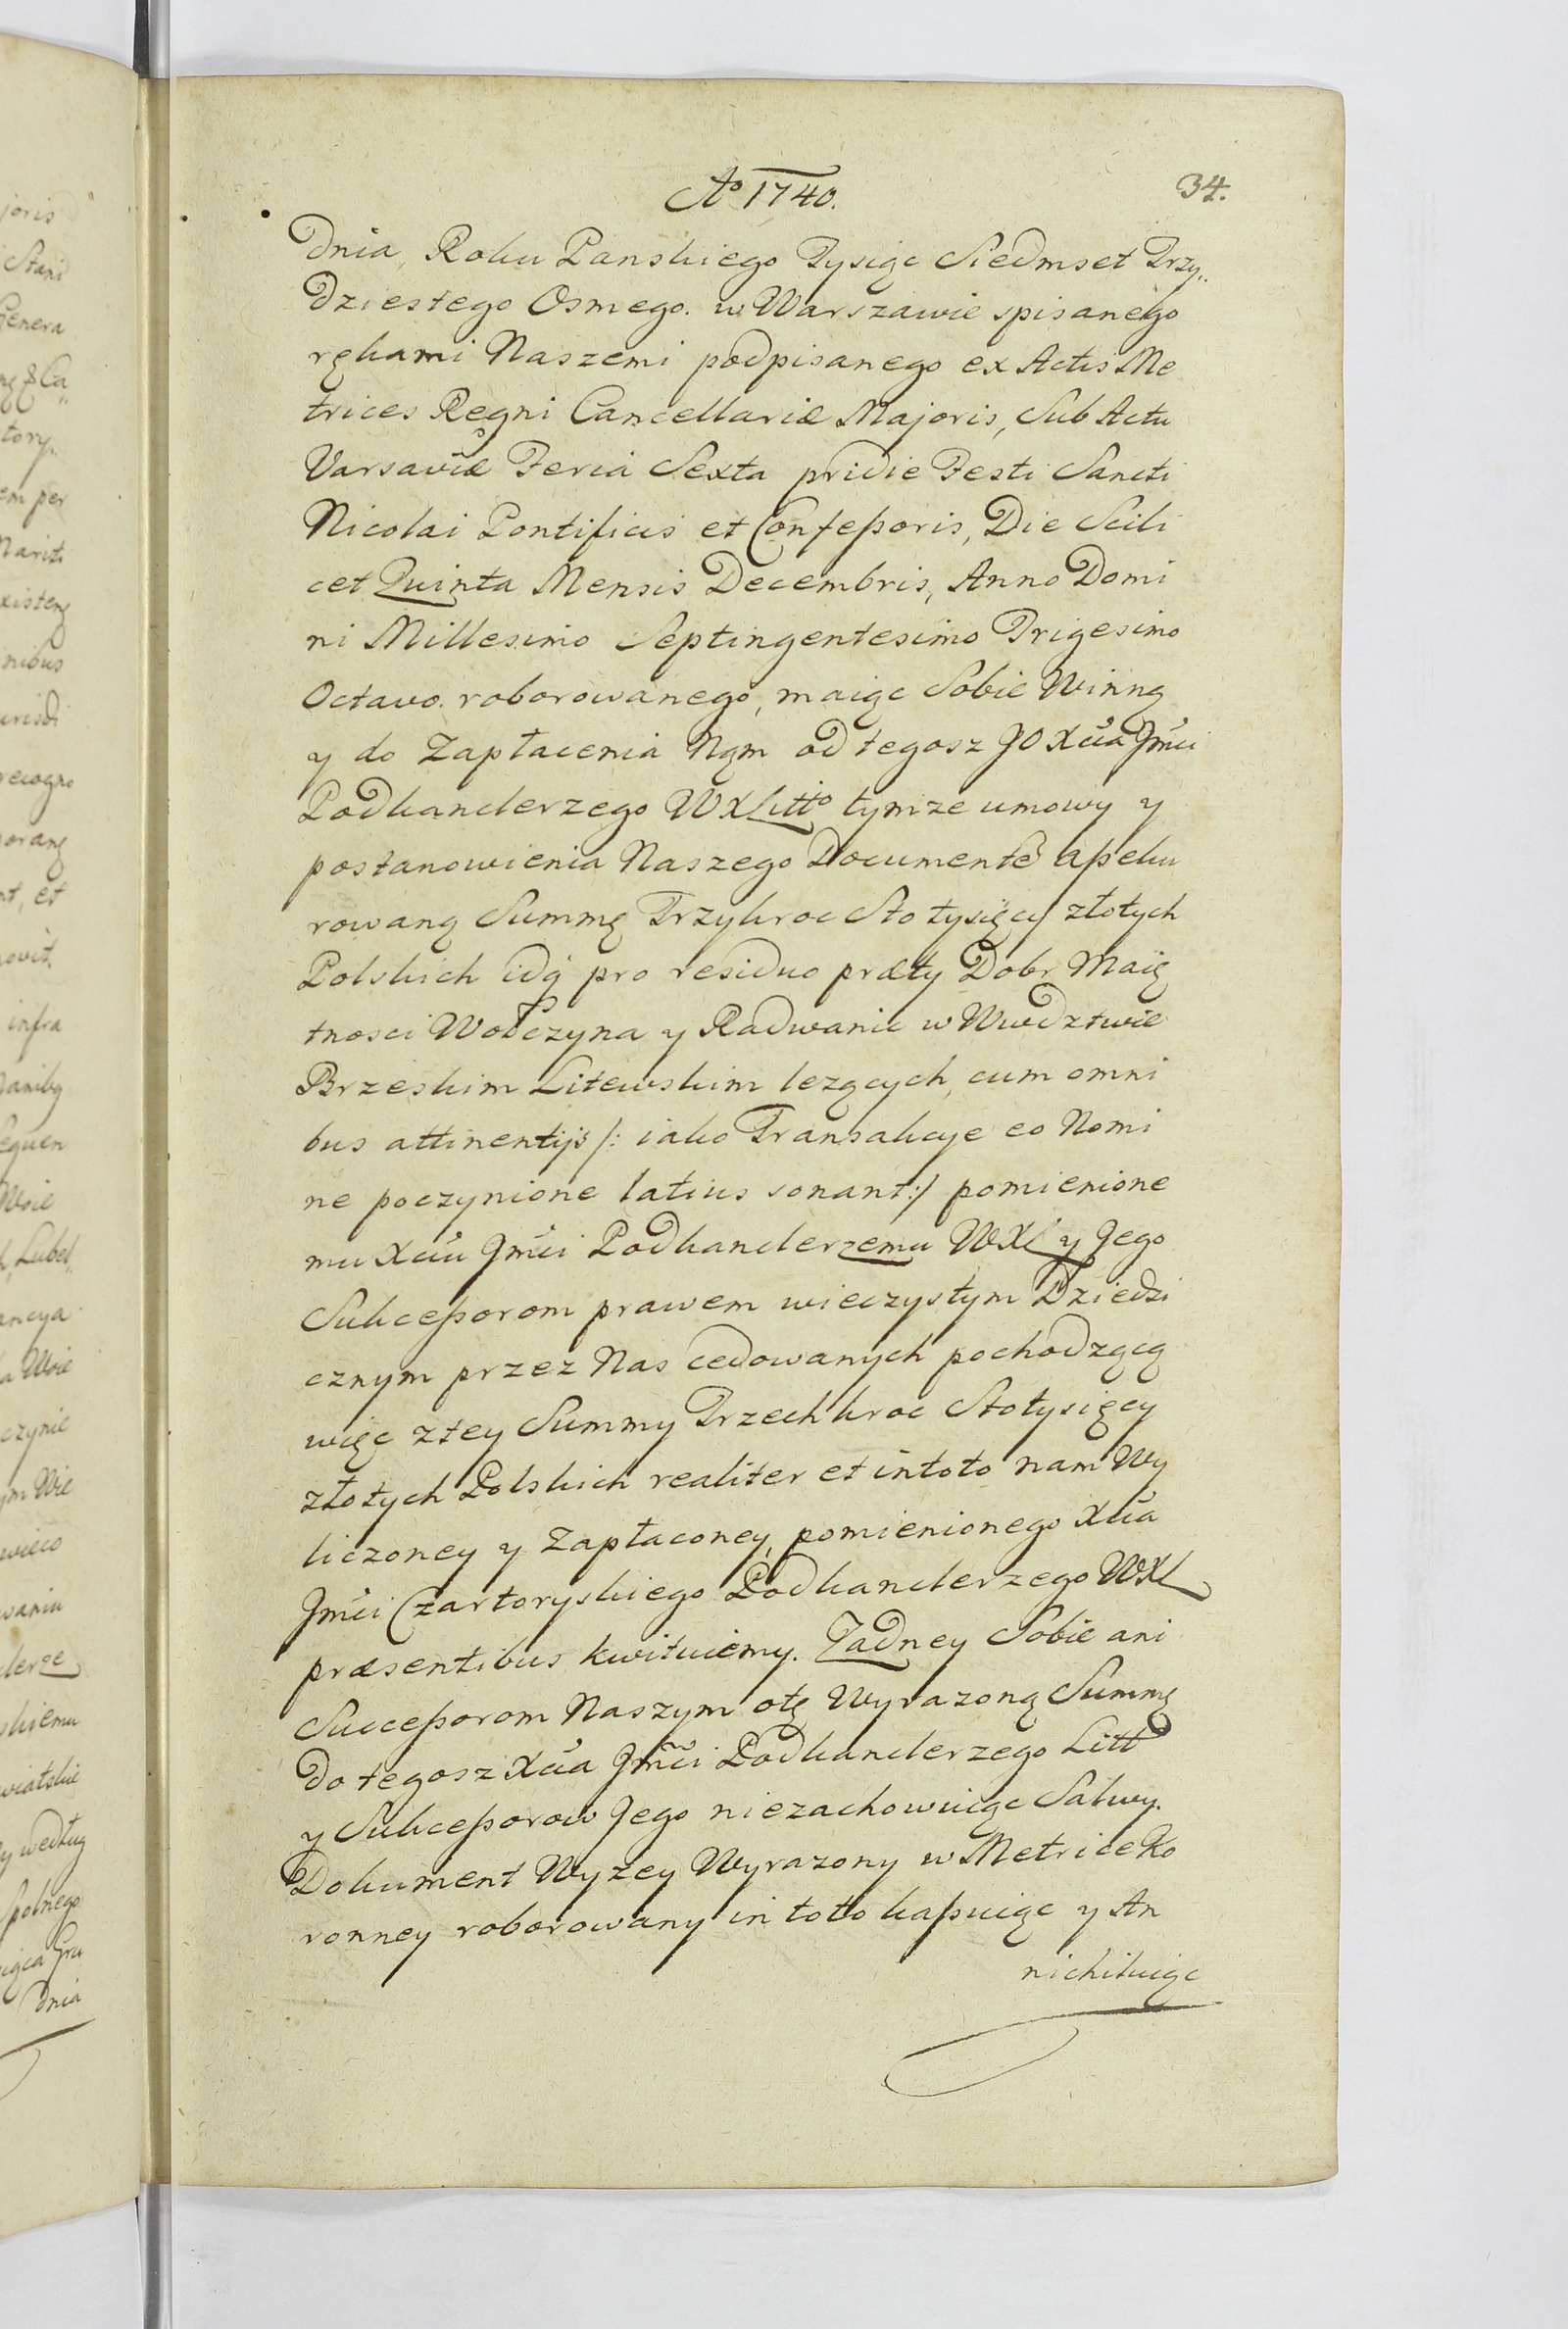 Aº 1740.
34.
Dnia, Roku Panskiego Tysiąc Siedmset Trzy„
dziestego Osmego. w Warszawie spisanego
rękami Naszemi podpisanego ex Actis Me
trices Regni Cancellariæ Majoris, Sub Actu
Varsaviæ Feria Sexta pridie Festi Sancti
Nicolai Pontificis et Confeßoris, Die Scili
cet Quinta Mensis Decembris, Anno Domi
ni Millesimo Septingentesimo Trigesimo
Octavo. roborowanego, maiąc Sobie Winną
y do Zapłacenia Nąm od tegosz JO Xcia Jmci
Podkanclerzego WXLittº tymze umowy y
postanowienia Naszego Documentē aßeku
rowaną Summę Trzykroc Sto tysięcy złotych
Polskich idq pro residuo præty Dobr Maię
tnosci Wołczyna y Radwanic w Wwdztwie
Brzeskim Litewskim lezących, cum omni
bus attinentijs /: iako Transakcye eo Nomi
ne poczynione latius sonant :/ pomienione
mu Xciu Jmci Podkanclerzemu WXL y Jego
Sukceßorom prawem wieczystym Dziedzi
cznym przez Nas cedowanych pochodzącą
więc ztey Summy Trzechkroc Stotysięcy
złotych Polskich realiter et intoto nam Wy
liczoney y Zapłaconey, pomienionego Xcia
Jmci Czartoryskiego Podkanclerzego WXL
præsentibus kwituiemy. Zadney Sobie ani
Succeßorom Naszym otę Wyrazoną Summę
do tegosz Xcia Jmci Podkanclerzego Littº
y Sukceßorow Jego niezachowuiąc Salwy.
Dokument Wyzey Wyrazony w Metrice Ko
ronney roborowany in toto kaßuiąc y An
nichiluiąc